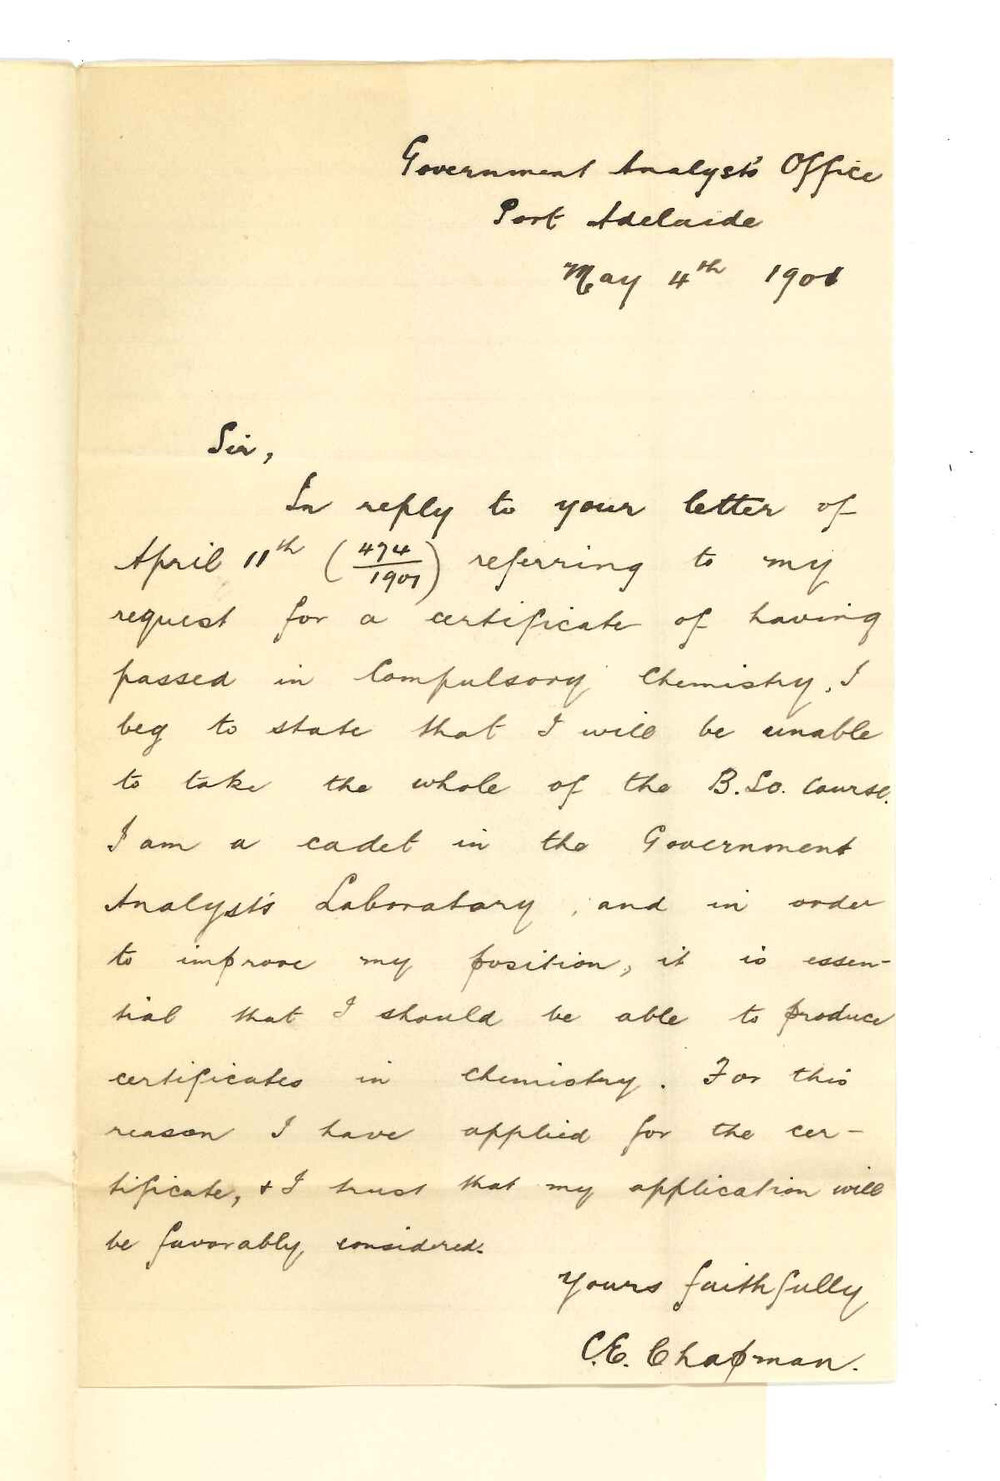 Government Analyst's Office
Port Adelaide
May 4th 1901
Sir,
In reply to your letter of
April 11th (474/1901) referring to my
request for a certificate of having
passed in Compulsory Chemistry, I
beg to state that I will be unable
to take the whole of the B.Sc. Course.
I am a cadet in the Government
Analyst's Laboratory, and in order
to improve my position, it is essen-
tial that I should be able to produce
certificates in chemistry. For this
reason I have applied for the cer-
tificate, & I trust that my application will
be favorably considered.
Yours faithfully
C.E. Chapman.